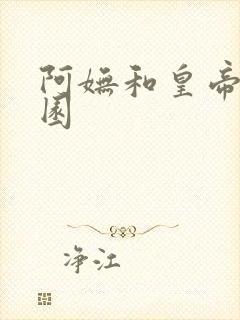 阿嫵和皇帝
園
净江